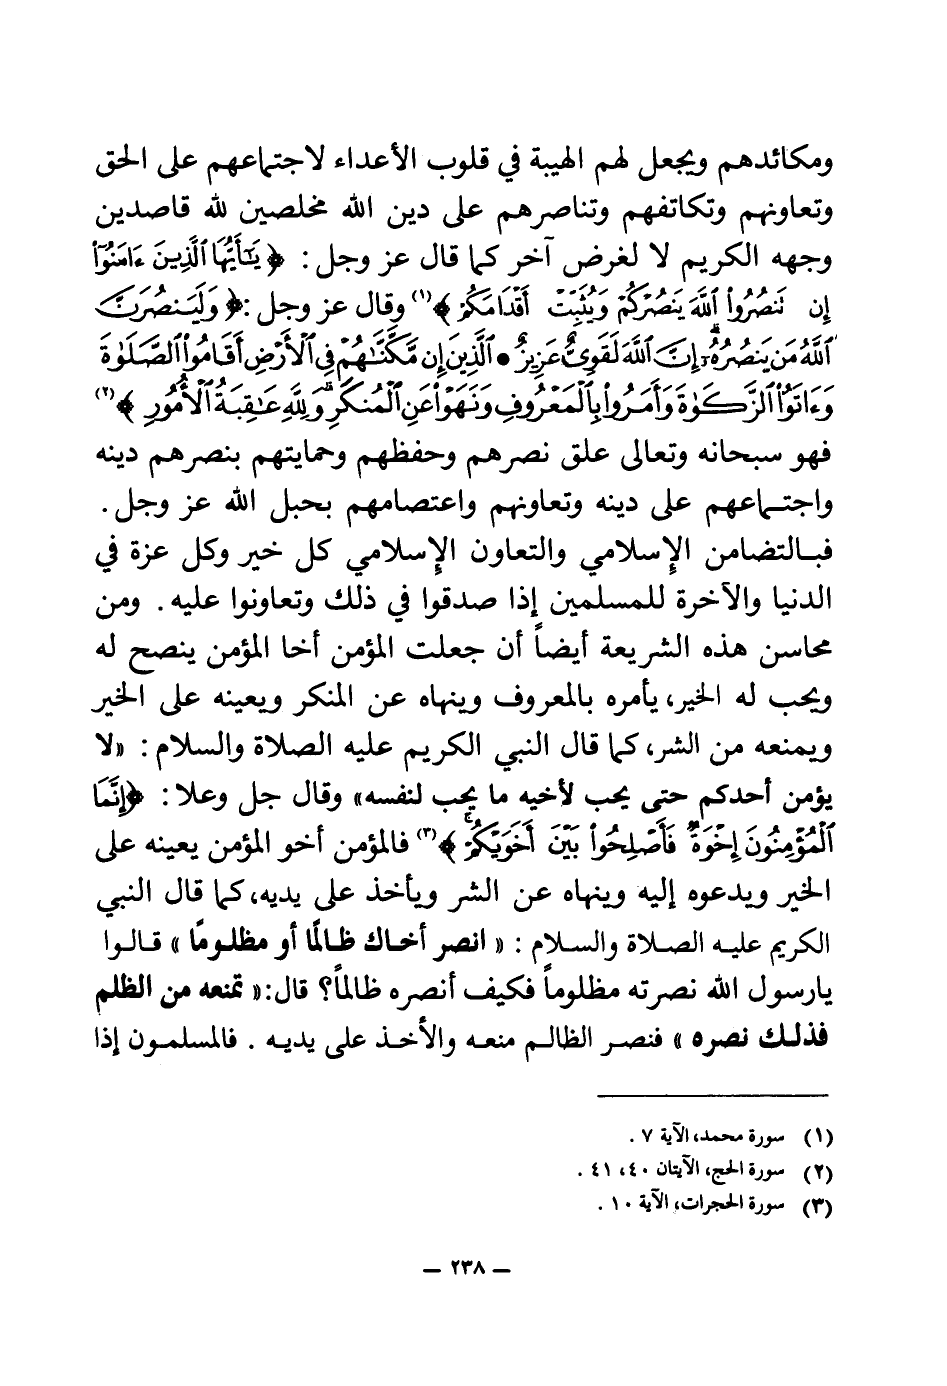 ومكائدهم ويجعل لهم الهيبة في قلوب الأعداء لاجتماعهم على الحق
وتعاونهم وتكاتفهم وتناصرهم على دين الله مخلصين لله قاصدين
وجهه الكريم لا لغرض آخر كما قال عز وجل : ﴿ يَٰٓأَيُّهَا ٱلَّذِينَ ءَامَنُوٓا۟
إِن تَنصُرُوا۟ ٱللَّهَ يَنصُرْكُمْ وَيُثَبِّتْ أَقْدَامَكُمْ ﴾(١) وقال عز وجل :﴿ وَلَيَنصُرَنَّ
ٱللَّهُ مَن يَنصُرُهُۥٓ ۗ إِنَّ ٱللَّهَ لَقَوِىٌّ عَزِيزٌ • ٱلَّذِينَ إِن مَّكَّنَّٰهُمْ فِى ٱلْأَرْضِ أَقَامُوا۟ ٱلصَّلَوٰةَ
وَءَاتَوُا۟ ٱلزَّكَوٰةَ وَأَمَرُوا۟ بِٱلْمَعْرُوفِ وَنَهَوْا۟ عَنِ ٱلْمُنكَرِ ۗ وَلِلَّهِ عَٰقِبَةُ ٱلْأُمُورِ ﴾(٢)
فهو سبحانه وتعالى علق نصرهم وحفظهم وحمايتهم بنصرهم دينه
واجتماعهم على دينه وتعاونهم واعتصامهم بحبل الله عز وجل .
فبالتضامن الإسلامي والتعاون الإسلامي كل خير وكل عزة في
الدنيا والآخرة للمسلمين إذا صدقوا في ذلك وتعاونوا عليه . ومن
محاسن هذه الشريعة أيضاً أن جعلت المؤمن أخا المؤمن ينصح له
ويحب له الخير، يأمره بالمعروف وينهاه عن المنكر ويعينه على الخير
ويمنعه من الشر، كما قال النبي الكريم عليه الصلاة والسلام : «لا
يؤمن أحدكم حتى يحب لأخيه ما يحب لنفسه» وقال جل وعلا : ﴿إِنَّمَا
ٱلْمُؤْمِنُونَ إِخْوَةٌ فَأَصْلِحُوا۟ بَيْنَ أَخَوَيْكُمْ ۚ ﴾(٣) فالمؤمن أخو المؤمن يعينه على
الخير ويدعوه إليه وينهاه عن الشر ويأخذ على يديه، كما قال النبي
الكريم عليه الصلاة والسلام : « انصر أخاك ظالمًا أو مظلومًا » قالوا
يارسول الله نصرته مظلوماً فكيف أنصره ظالماً؟ قال:« تمنعه من الظلم
فذلك نصره » فنصر الظالم منعه والأخذ على يديه . فالمسلمون إذا
(١) سورة محمد، الآية ٧ .
(٢) سورة الحج، الآيتان ٤٠، ٤١ .
(٣) سورة الحجرات، الآية ١٠ .
– ٢٣٨ –